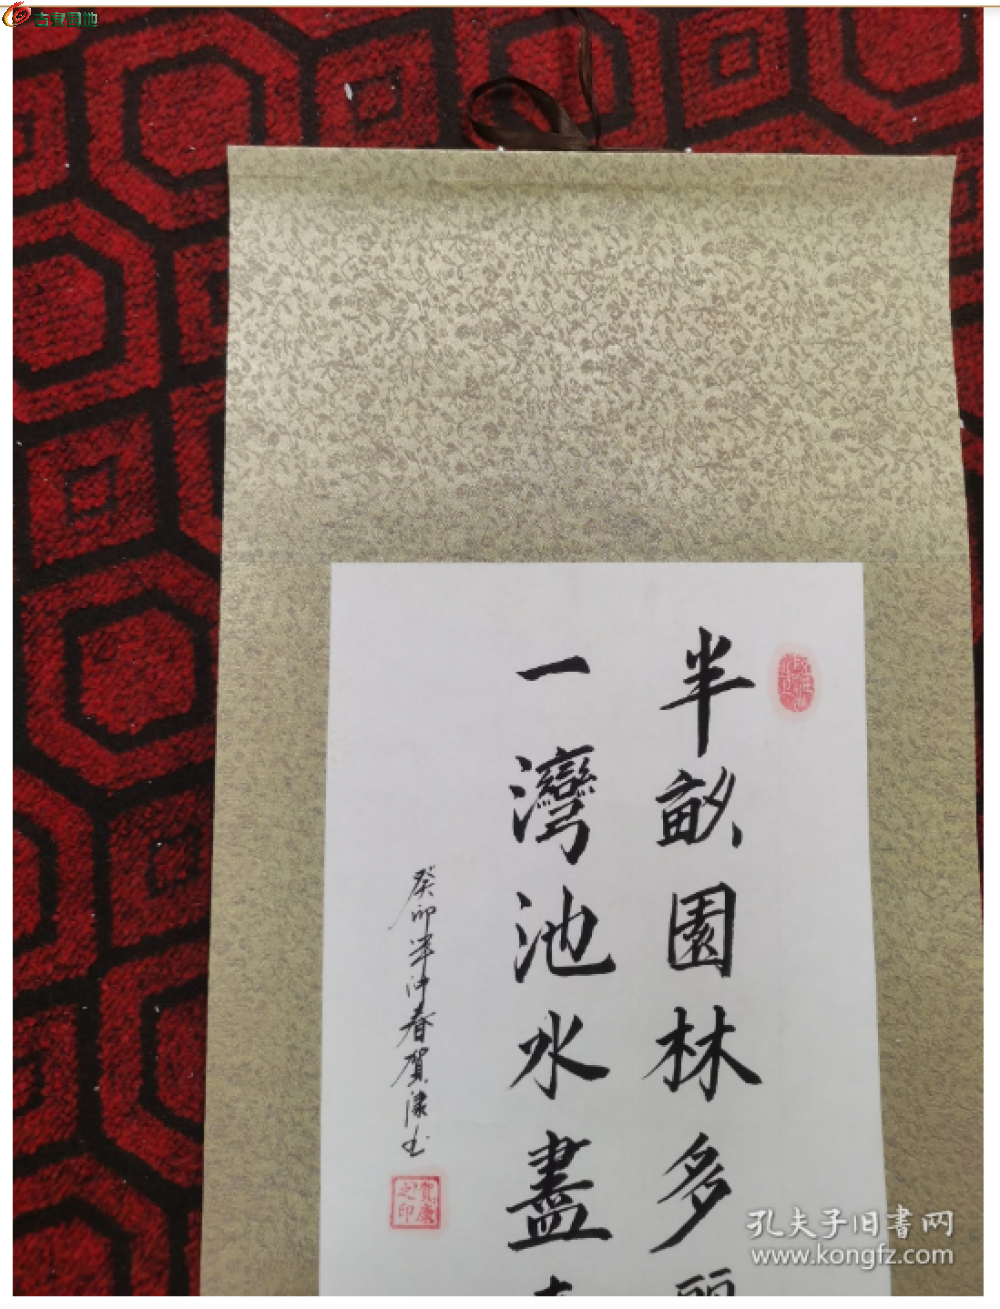 吉泉园地
半畝園林多
一灣池水盡
癸卯年仲春賀康书
賀康之印
孔夫子旧書网
www.kongfz.com